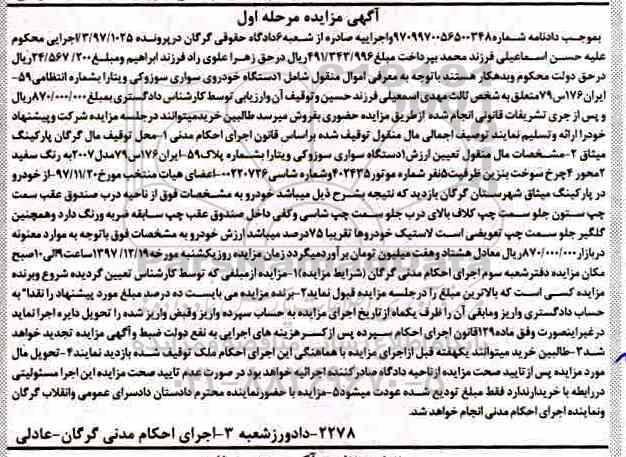 آگهی مزایده مرحله اول
بموجب دادنامه شماره۹۷۰۹۹۷۰۰۵۶۵۰۰۳۴۸واجرائیه صادره از شعبه۶دادگاه حقوقی گرگان درپرونده ۳/۹۷/۱۰۲۵/اجرایی محکوم
علیه حسن اسماعیلی فرزند محمد بپرداخت مبلغ۴۹۱/۳۴۳/۹۹۶ریال درحق زهرا علوی راد فرزند ابراهیم ومبلغ۲۴/۵۶۷/۲۰۰ریال
درحق دولت محکوم وبدهکار هستند باتوجه به معرفی اموال منقول شامل ۱دستگاه خودروی سواری سوزوکی ویتارا بشماره انتظامی۵۹-
ایران۱۷۶س۷۹متعلق به شخص ثالث مهدی اسمعیلی فرزند حسین وتوقیف آن وارزیابی توسط کارشناس دادگستری بمبلغ۸۷۰/۰۰۰/۰۰۰ریال
و پس از جری تشریفات قانونی انجام شده ازطریق مزایده حضوری بفروش میرسد طالبین خریدمیتوانند درجلسه مزایده شرکت وپیشنهاد
خودرا ارائه وتسلیم نمایند توصیف اجمالی مال منقول توقیف شده براساس قانون اجرای احکام مدنی ۱-محل توقیف مال گرگان پارکینگ
میثاق ۲-مشخصات مال منقول تعیین ارزش۱دستگاه سواری سوزوکی ویتارا بشماره پلاک۵۹-ایران۱۷۶س۷۹مدل۲۰۰۷به رنگ سفید
۲محور ۴چرخ سوخت بنزین ظرفیت۵نفر شماره موتور۴۰۲۴۳۵وشماره شاسی۰۰۲۲۰۷۲۶-اعضای هیات منتخب مورخ۹۷/۱۱/۲۰-از خودرو
در پارکینگ میثاق شهرستان گرگان بازدید که نتیجه بشرح ذیل میباشد خودرو به مشخصات فوق از ناحیه درب صندوق عقب سمت
چپ ستون جلو سمت چپ کلاف بالای درب جلو سمت چپ شاسی وکفی داخل صندوق عقب چپ سابقه ضربه ورنگ دارد وهمچنین
گلگیر جلو سمت چپ تعویضی است لاستیک خودروها تقریبا ۷۵درصد میباشد ارزش خودرو به مشخصات فوق باتوجه به موارد معنونه
دربازار۸۷۰/۰۰۰/۰۰۰ریال معادل هشتاد وهفت میلیون تومان برآوردمیگردد زمان مزایده روزیکشنبه مورخه۱۳۹۷/۱۲/۱۹ساعت۹الی۱۰صبح
مکان مزایده دفترشعبه سوم اجرای احکام مدنی گرگان (شرایط مزایده)۱-مزایده ازمبلغی که توسط کارشناس تعیین گردیده شروع وبرنده
مزایده کسی است که بالاترین مبلغ را درجلسه مزایده قبول نماید۲-برنده مزایده می بایست ده درصد مبلغ مورد پیشنهاد را نقدا" به
حساب دادگستری واریز ومابقی آن را ظرف یکماه ازتاریخ اجرای مزایده به حساب سپرده واریز وقبض واریز شده را تحویل دایره اجرا نماید
درغیراینصورت وفق ماده۱۲۹قانون اجرای احکام سپرده پس ازکسرهزینه های اجرایی به نفع دولت ضبط وآگهی مزایده تجدید خواهد
شد۳-طالبین خرید میتوانند یکهفته قبل ازاجرای مزایده با هماهنگی این اجرای احکام ملک توقیف شده بازدید نمایند۴-تحویل مال
مورد مزایده پس ازتایید صحت مزایده ازناحیه دادگاه صادرکننده اجرائیه خواهد بود در صورت عدم تایید صحت مزایده این اجرا مسئولیتی
دررابطه با خریدارندارد فقط مبلغ تودیع شده عودت میشود۵-مزایده با حضورنماینده محترم دادستان دادسرای عمومی وانقلاب گرگان
ونماینده اجرای احکام مدنی انجام خواهد شد.
۲۲۷۸-دادورزشعبه ۳-اجرای احکام مدنی گرگان-عادلی